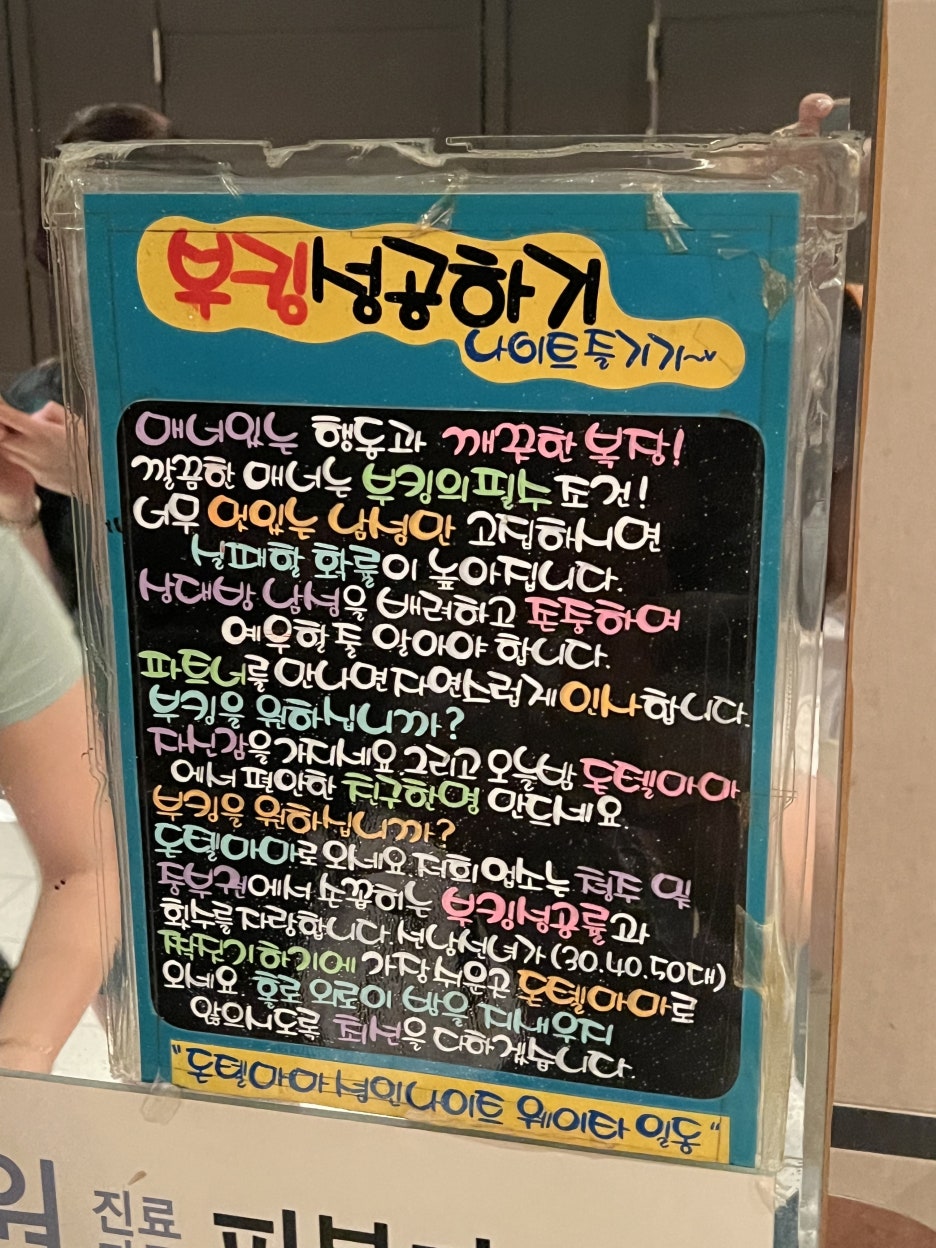 부킹성공하기
나이트즐기기~
매너있는 행동과 깨끗한 복장!
깔끔한 매너는 부킹의 필수 조건!
너무 멋있는 남성만 고집하시면
실패할 확률이 높아집니다.
상대방 남성을 배려하고 존중하며
예우할 줄 알아야 합니다.
파트너를 만나면 자연스럽게 인사합니다.
부킹을 원하십니까?
자신감을 가지세요. 그리고 오늘밤 돈텔마마
에서 편안한 친구한명 만드세요.
부킹을 원하십니까?
돈텔마마로 오세요 저희 업소는 청주 및
중부권에서 손꼽히는 부킹성공률과
횟수를 자랑합니다. 선남선녀가 (30.40.50대)
짝짓기하기에 가장 쉬운곳 돈텔마마로
오세요 홀로 외로이 밤을 지새우지
않으시도록 최선을 다하겠습니다.
"돈텔마마성인나이트 웨이타 일동"
원 진료 피부